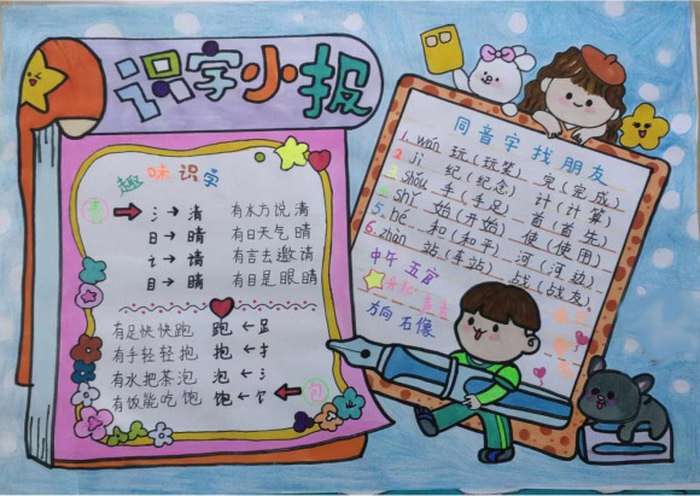 识字小报
趣味识字
青 → 氵 → 清 有水方说清
日 → 晴 有日天气晴
讠 → 请 有言去邀请
目 → 睛 有目是眼睛
有足快快跑 跑 ← ⻊
有手轻轻抱 抱 ← 扌
有水把茶泡 泡 ← 氵
有饭能吃饱 饱 ← 饣 ← 包
同音字找朋友
1. wán 玩(玩笑) 完(完成)
2. jì 纪(纪念) 计(计算)
3. shǒu 手(手足) 首(首先)
4. shǐ 始(开始) 使(使用)
5. hé 和(和平) 河(河边)
6. zhàn 站(车站) 战(战友)
中午 五官
方向 石像